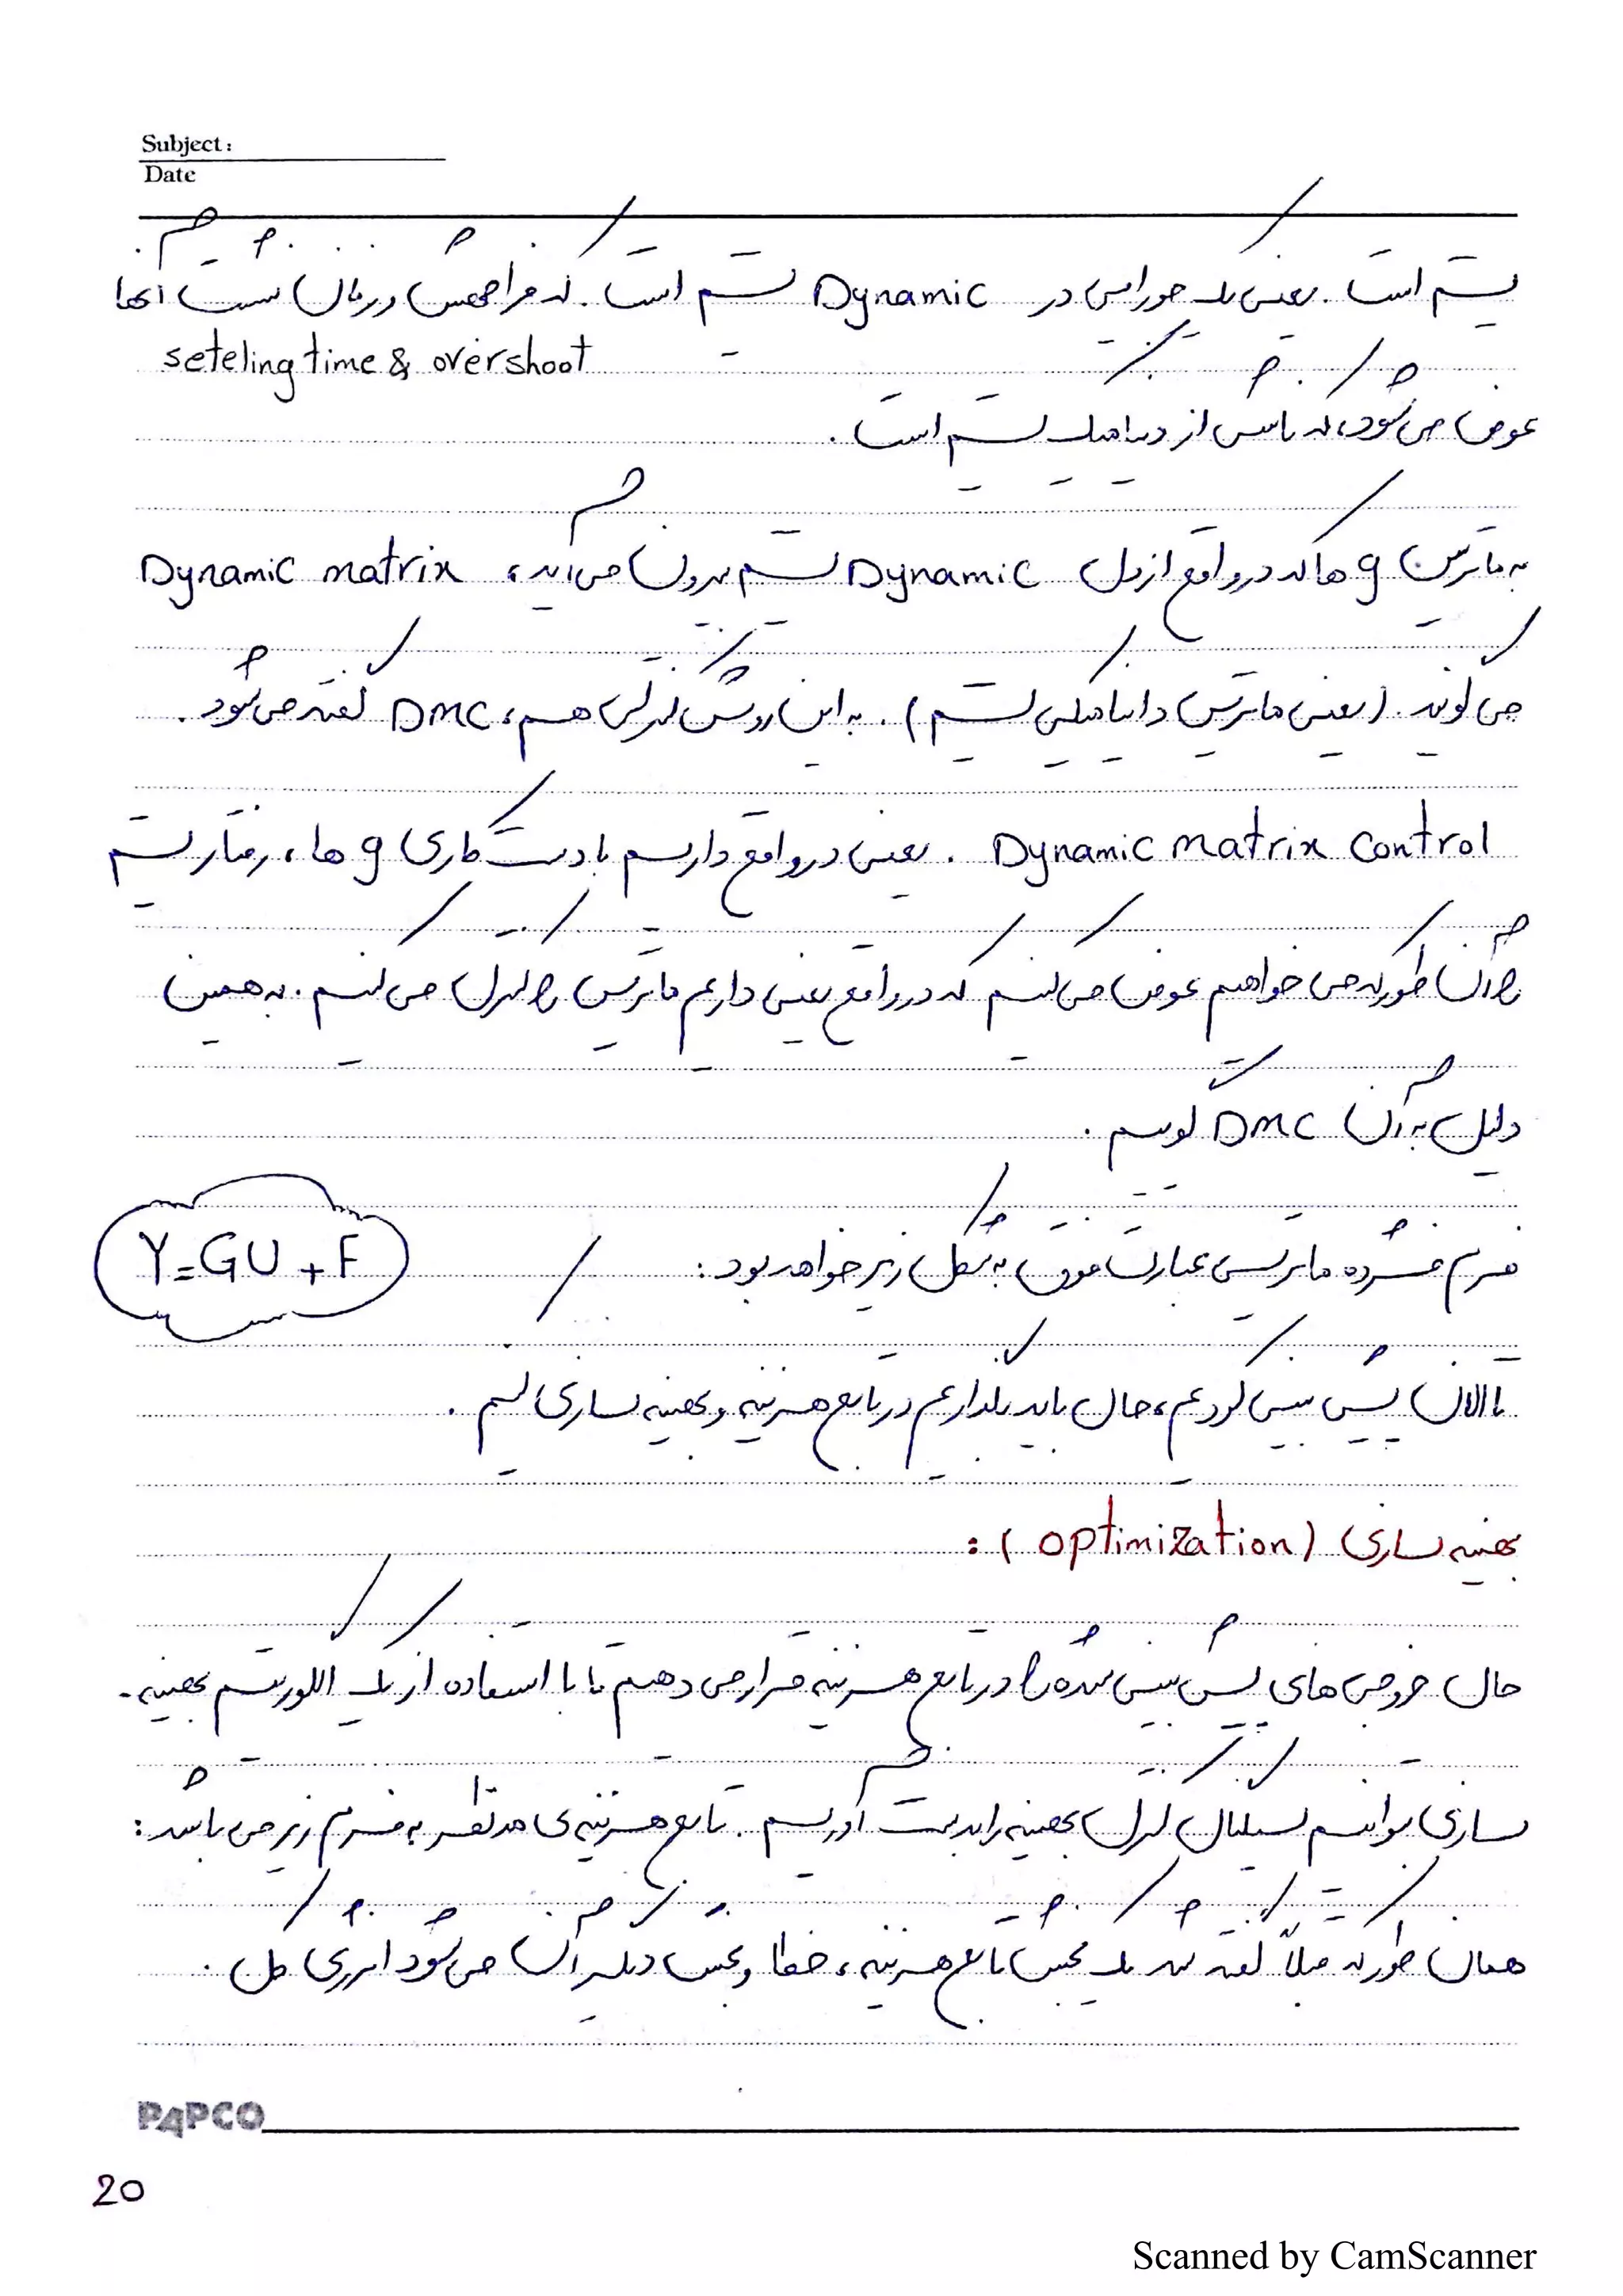 Subject:
Date
سیستم است. یعنی یک جورایی در Dynamic سیستم است. که فراجهش و زمان نشست آنها
seteling time & overshoot
عوض می‌شود، که ناشی از دینامیک سیستم است.
به ماتریس g ها که در واقع از دل Dynamic سیستم بیرون می‌آید، Dynamic matrix
می‌گویند. (یعنی ماتریس داینامیکی سیستم). به این روش کنترلی هم، DMC گفته می‌شود.
Dynamic Matrix Control. یعنی در واقع داریم با دست کاری g ها، رفتار سیستم
را آن طور که می خواهیم عوض می‌کنیم که در واقع یعنی داریم ماتریس را کنترل می‌کنیم. به همین
دلیل به آن DMC گوییم.
فرم فشرده ماتریسی عبارت فوق به شکل زیر خواهد بود: Y=GU+F
تا الان پیش بینی کردیم، حال باید بگذاریم در تابع هزینه و بهینه سازی کنیم.
بهینه سازی (optimization):
حال خروجی های پیش بینی شده را در تابع هزینه قرار می دهیم تا با استفاده از یک الگوریتم بهینه-
سازی بتوانیم سیگنال کنترل بهینه را بدست آوریم. تابع هزینه‌ی مد نظر به فرم زیر می باشد:
همان طور که قبلاً گفته شد یک بخش تابع هزینه، خطا و بخش دیگر آن می‌شود انرژی کل.
PAPCO
20
Scanned by CamScanner